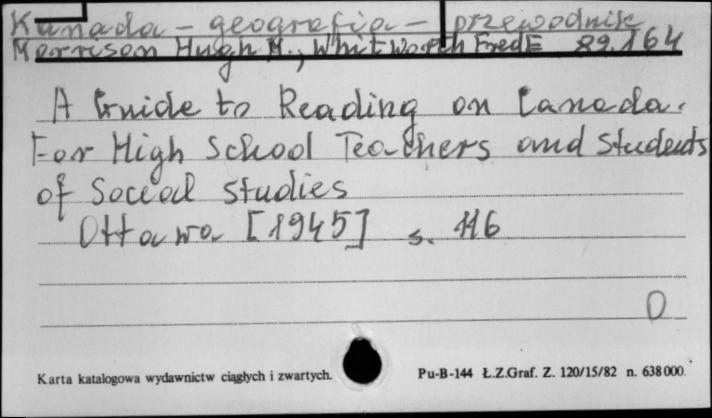 Kanada - geografia - przewodnik
Morrison Hugh M., Whitworth Fred E 89.164
A Guide to Reading on Canada.
For High School Teachers and Students
of Social Studies
Ottawa [1945] s. 116
O
Karta katalogowa wydawnictw ciągłych i zwartych. Pu-B-144 Ł.Z.Graf. Z. 120/15/82 n. 638000.